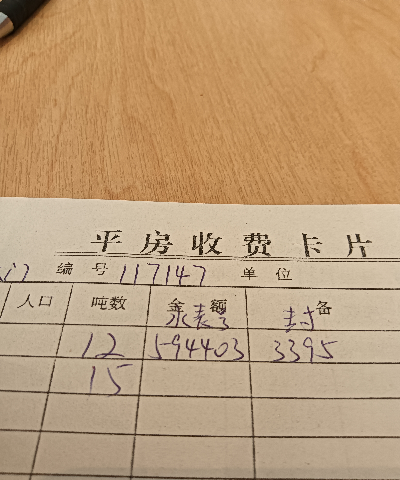 平房收费卡片
编号 117147 单位
人口 吨数 金额 备
水表号 封
12 594403 3395
15